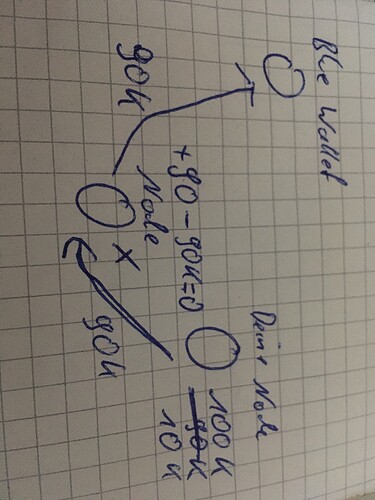 Blue Wallet
Deine Node
100k
90k
10k
+90 - 90k=0
Node
X
90k
90k